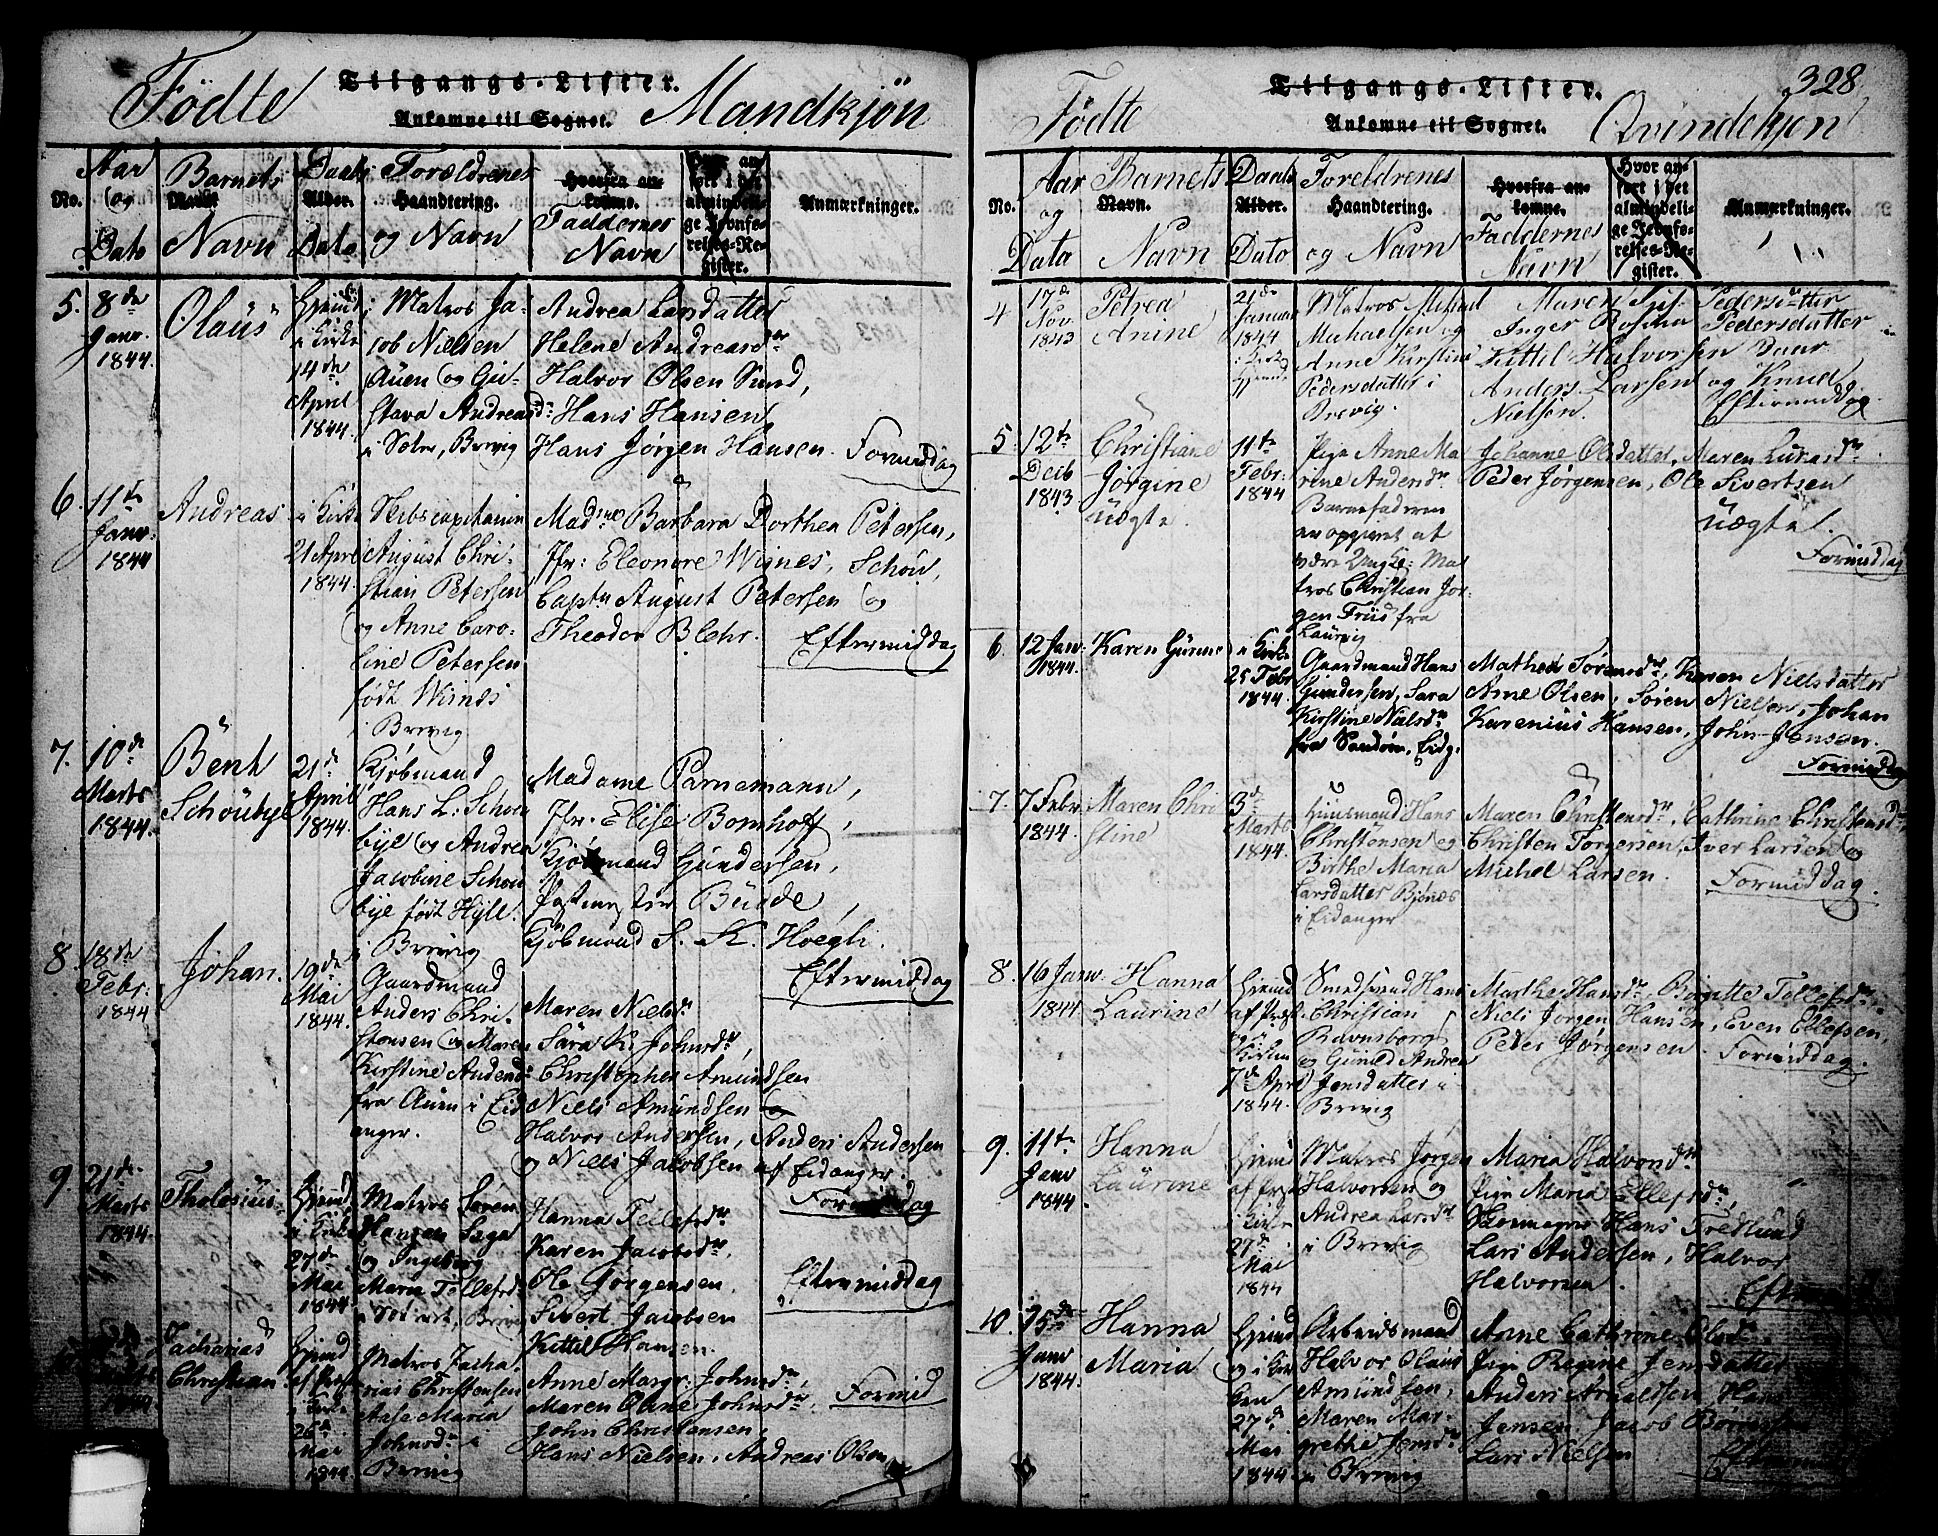 Födte Tilgangs-Lister. Mandkjön
Ankomne til Sognet.
No. Aar og Dato
Barnets Navn
Daabs Alder. Dato
Forældrenes Haandtering. og Navn
Hvorfra ankomne. Faddernes Navn
Anmærkninger.
5. 8de Janr. 1844.
Olaus
i Kirke 14de April 1844.
Matros Ja-
cob Nielsen
Auen og Gu-
stava Andreasd.
Brevig
Andrea Larsdatter
Helene Andreasdr
Halvor Olsen Sund,
Hans Hansen
Hans Jørgen Hansen. Formiddag
6. 11te Janr. 1844
Andreas
i Kirke
21 April
1844.
Skibscapitain
August Chri-
stian Petersen
og Anne Caro-
line Petersen
født Wignes
i Brevig
Madme Barbara Dorthea Petersen,
Jfr: Eleonore Wignes, Schou,
Captn August Petersen og
Theodor Blehr. Eftermiddag
7. 10de Marts 1844.
Bent
Schöubye
21de
April
1844.
Kjøbmand
Hans L: Schou
bye og Andrea
Jacobine Schou
bye født Hyll.
i Brevig
Madame Parnemann,
Jfr. Elise Bomhoff,
Kjøbmand Gundersen,
Postmester Budde,
Kjøbmand S. K. Hoegh.
Eftermiddag
8. 18de Febr. 1844
Johan.
19de
Mai
1844.
Gaardmand
Anders Chri-
stensen og Maren
Kirstine Andersd.
fra Auen i Eid
anger.
Maren Nielsdr
Sara K. Johnsdr,
Christopher Amundsen
Niels Amundsen
Halvor Andersen, Anders Andersen
og Niels Jacobsen af Eidanger.
Formiddag
9. 21de Marts 1844.
Tholosius
i Kirke
27de
Mai
1844
Matros Søren
Hansen
og Ingeborg
Maria Tollefsd
Brevig
Hanna Tellefsdr
Karen Jacobsdr,
Ole Jørgensen,
Sivert Jacobsen
Kittil Hansen.
Eftermiddag
Zacharias
Christian
i Kirke
26de
Mai
1844
Matros Zacha
rias Christensen
Aase Maria
Johnsdr i
Brevig
Anne Margr: Johnsdr,
Maren Oline Johnsdr,
John Christensen,
Hans Nielsen, Andreas Olsen
Formid
Födte Tilgangs-Lister. Qvindekjön
328.
Ankomne til Sognet.
No. Aar og Dato
Barnets Navn. Navn
Daabs Alder. Dato
Foreldrenes Haandtering. og Navn
Hvorfra ankomne. Faddernes Navn
Hvor anført i det almindelige Jevnførelses-Register.
Anmærkninger.
4 17de Nov. 1843
Petrea
Anine
21de
Januar
1844
Matros Michael
Michaelsen og
Anne Kirstine
Pedersdatter i
Brevig.
Maren Pedersdatter
Inger Pedersdatter
Kittil Halvorsen
Anders Larsen og Knud
Nielsen. Eftermiddag.
5. 12te Decb 1843
Christiane
Jørgine
Uægte.
11te
Febr:
1844
Pige Anne Ma
rine Andersdr
Barnefaderen
er opgivet at
være Ungk: Ma-
tros Christian Jør-
gen Friis fra
Laurvig
Johanne Olsdatter, Maren Lucasdr
Peder Jørgensen, Ole Sivertsen
Uægte.
Formiddag
6. 12 Janr. 1844.
Karen Gurine
i Kirke
25 Febr
1844.
Gaardmand Hans
Gundersen, Sara
Kirstine Nielsdr
fra Sandøen, Eidg.
Mathea Torensdr, Karen Nielsdatter
Arne Olsen, Søren Nielsen, Johan
Karenius Hansen, John Jensen.
Formiddag
7. 7 Febr 1844.
Maren Chri
stine
3de
Marts
1844.
Huusmand Hans
Christensen og
Birthe Maria
Larsdatter Bjønnes
i Eidanger
Maren Christensdr, Cathrine Christensd
Christen Torgersen, Iver Larsen og
Michel Larsen.
Formiddag.
8. 16 Janr. 1844
Hanna
Laurine
Hjemd
af Præst
og i
Kirken
7de April
1844.
Smedsvend Hans
Christian
Ravnsborg
og Gunild Andrea
Jensdatter i
Brevig
Marthe Hansdr, Birgitte Tollefsdr
Niels Jørgen Hansen, Even Ellefsen,
Peder Jørgensen. Formiddag.
9. 11te Janr 1844.
Hanna
Laurine
Hjemd
af Præst
i Kirke
27de
Mai
1844
Matros Jørgen
Halvorsen og
Andrea Larsdr
i Brevig
Maria Halvorsdr
Pige Maria Ellefsdr,
Skomager Hans Tredlund
Lars Andersen, Halvor
Halvorsen.
10. 15de Janr 1844.
Hanna
Maria
Hjemd
og i Kir
ken
27de
Mai
1844
Arbeidsmand
Halvor Olaus
Amundsen,
Maren Mar-
grethe Jensdr
i Brevig
Anne Cathrine Olsdr.
Pige Regine Jensdatter
Anders Arnoldsen, Hans
Jensen, Jacob
Lars Nielsen